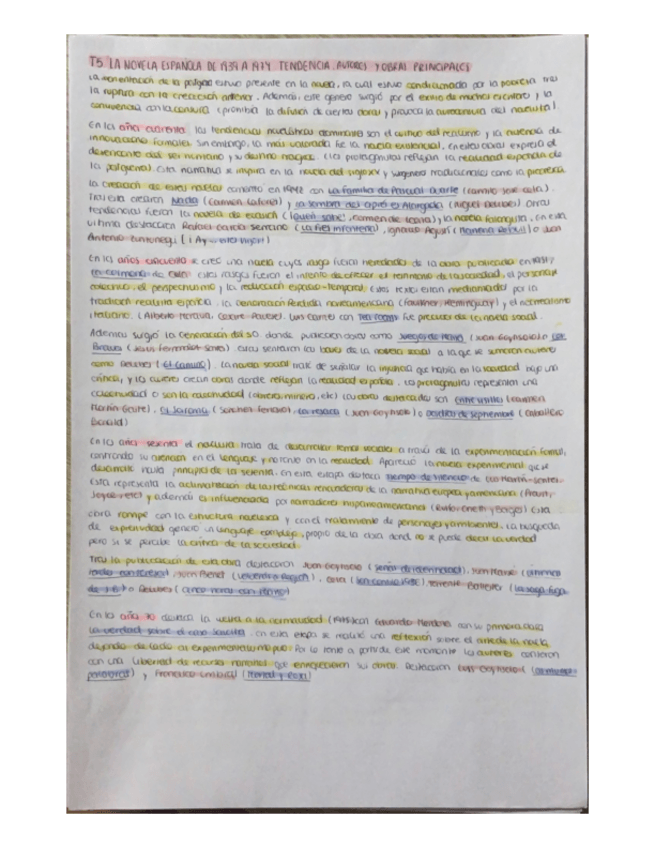 T5 LA NOVELA ESPAÑOLA DE 1939 A 1974. TENDENCIA, AUTORES Y OBRAS PRINCIPALES
La orientación de la posguerra estuvo presente en la novela, la cual estuvo condicionada por la pobreza tras
la ruptura con la creación anterior. Además, este género surgió por el exilio de muchos escritores y la
convivencia con la censura (prohibía la difusión de ciertas obras) y provoca la autocensura del
En los años cuarenta, las tendencias novelísticas dominantes son el cultivo del realismo y la ausencia de
innovaciones formales. Sin embargo, la más valorada fue la novela existencial, en estas obras expresa el
del ser humano y su destino trágico. (los protagonistas reflejan la realidad española de
la posguerra). Esta narrativa se inspira en la novela del siglo XIX y tradicionales como la picaresca
la creación de estas novelas comenzó en 1942 con La familia de Pascual Duarte (Camilo José Cela).
Tras esta crearon Nada (Carmen Laforet) y La sombra del ciprés es alargada (Miguel Delibes). Otras
tendencias fueron la novela de evasión (¿Quién sabe?, Carmen de Icaza) y la novela falangista, en esta
última destacaron Rafael García Serrano (La fiel infantería), Ignacio Agustí (Mariona Rebull) o Juan
Antonio
En los años cincuenta se creó una novela cuyos rasgos fueron heredados de la obra publicada en 1951,
La colmena de Cela. Estos rasgos fueron el intento de ofrecer el testimonio de la sociedad, el personaje
colectivo, el perspectivismo y la reducción espacio-temporal. Estos textos están mediatizados por la
tradición realista española, la Generación Perdida norteamericana (Faulkner, Hemingway) y el neorrealismo
italiano. (Alberto Moravia, Cesare Pavese). fue precursor de la novela social.
Además surgió la Generación del 50, donde publicaron obras como Juegos de manos (Juan Goytisolo) o Los
Bravos (Jesús Fernández Santos). Estos sentaron las bases de la novela social a la que se sumaron autores
como Delibes (El camino). La novela social trata de señalar la injusticia que había en la sociedad bajo una
crítica, y los autores crean obras donde reflejan la realidad española. Los protagonistas representan una
colectividad o son la colectividad (obreros, mineros, etc) Las obras destacadas son Entre visillos (Carmen
Martín Gaite), El Jarama (Sánchez Ferlosio), La resaca (Juan Goytisolo) o Dos días de septiembre (Caballero
Bonald)
En los años sesenta el trata de desarrollar temas sociales a través de la experimentación formal,
centrando su atención en el lenguaje y no tanto en la realidad. Apareció la novela experimental que se
desarrolló hasta principios de los setenta, en esta etapa destaca Tiempo de silencio de Luis Martín-Santos.
Esta representa la aclimatación de las técnicas renovadoras de la narrativa europea y americana (Proust,
Joyce, etc) y además es influenciada por narradores hispanoamericanos (Rulfo, Onetti y Borges) Esta
obra rompe con la estructura novelesca y con el tratamiento de personajes y ambientes. La búsqueda
de expresividad generó un lenguaje complejo, propio de la obra donde no se puede decir la verdad
pero si se percibe la crítica de la sociedad.
Tras la publicación de esta obra destacaron Juan Goytisolo (Señas de identidad), Juan Marsé (Últimas
tardes con Teresa), Juan Benet (Volverás a Región), Cela (San Camilo 1936), Torrente Ballester (La saga/fuga
de J.B) o Delibes (Cinco horas con Mario)
En los años 70 destaca la vuelta a la normalidad Eduardo Mendoza con su primera obra
La verdad sobre el caso Savolta. En esta etapa se realizó una reflexión sobre el arte de la novela
dejando de lado el experimentalismo puro. Por lo tanto a partir de este momento los autores contaron
con una libertad de recursos narrativos que enriquecieron sus obras. Destacaron Luis Goytisolo
y Francisco Umbral (Mortal y rosa)